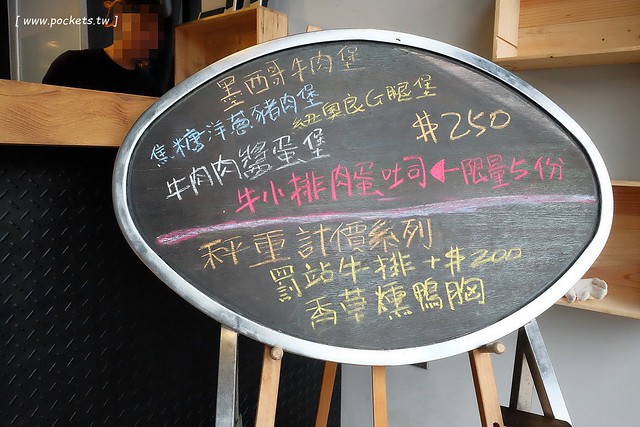 [ www.pockets.tw ]
墨西哥牛肉堡
焦糖洋蔥豬肉堡
紐奧良G腿堡
$250
牛肉肉醬蛋堡
牛小排肉蛋吐司←限量5份
秤重計價系列
罰站牛排+$200
香草燻鴨胸